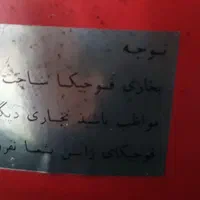 توجه
بخاری فوجیکا ساخت
مواظب باشید بخاری دیگ
فوجیکای ژاپن شما نفرو